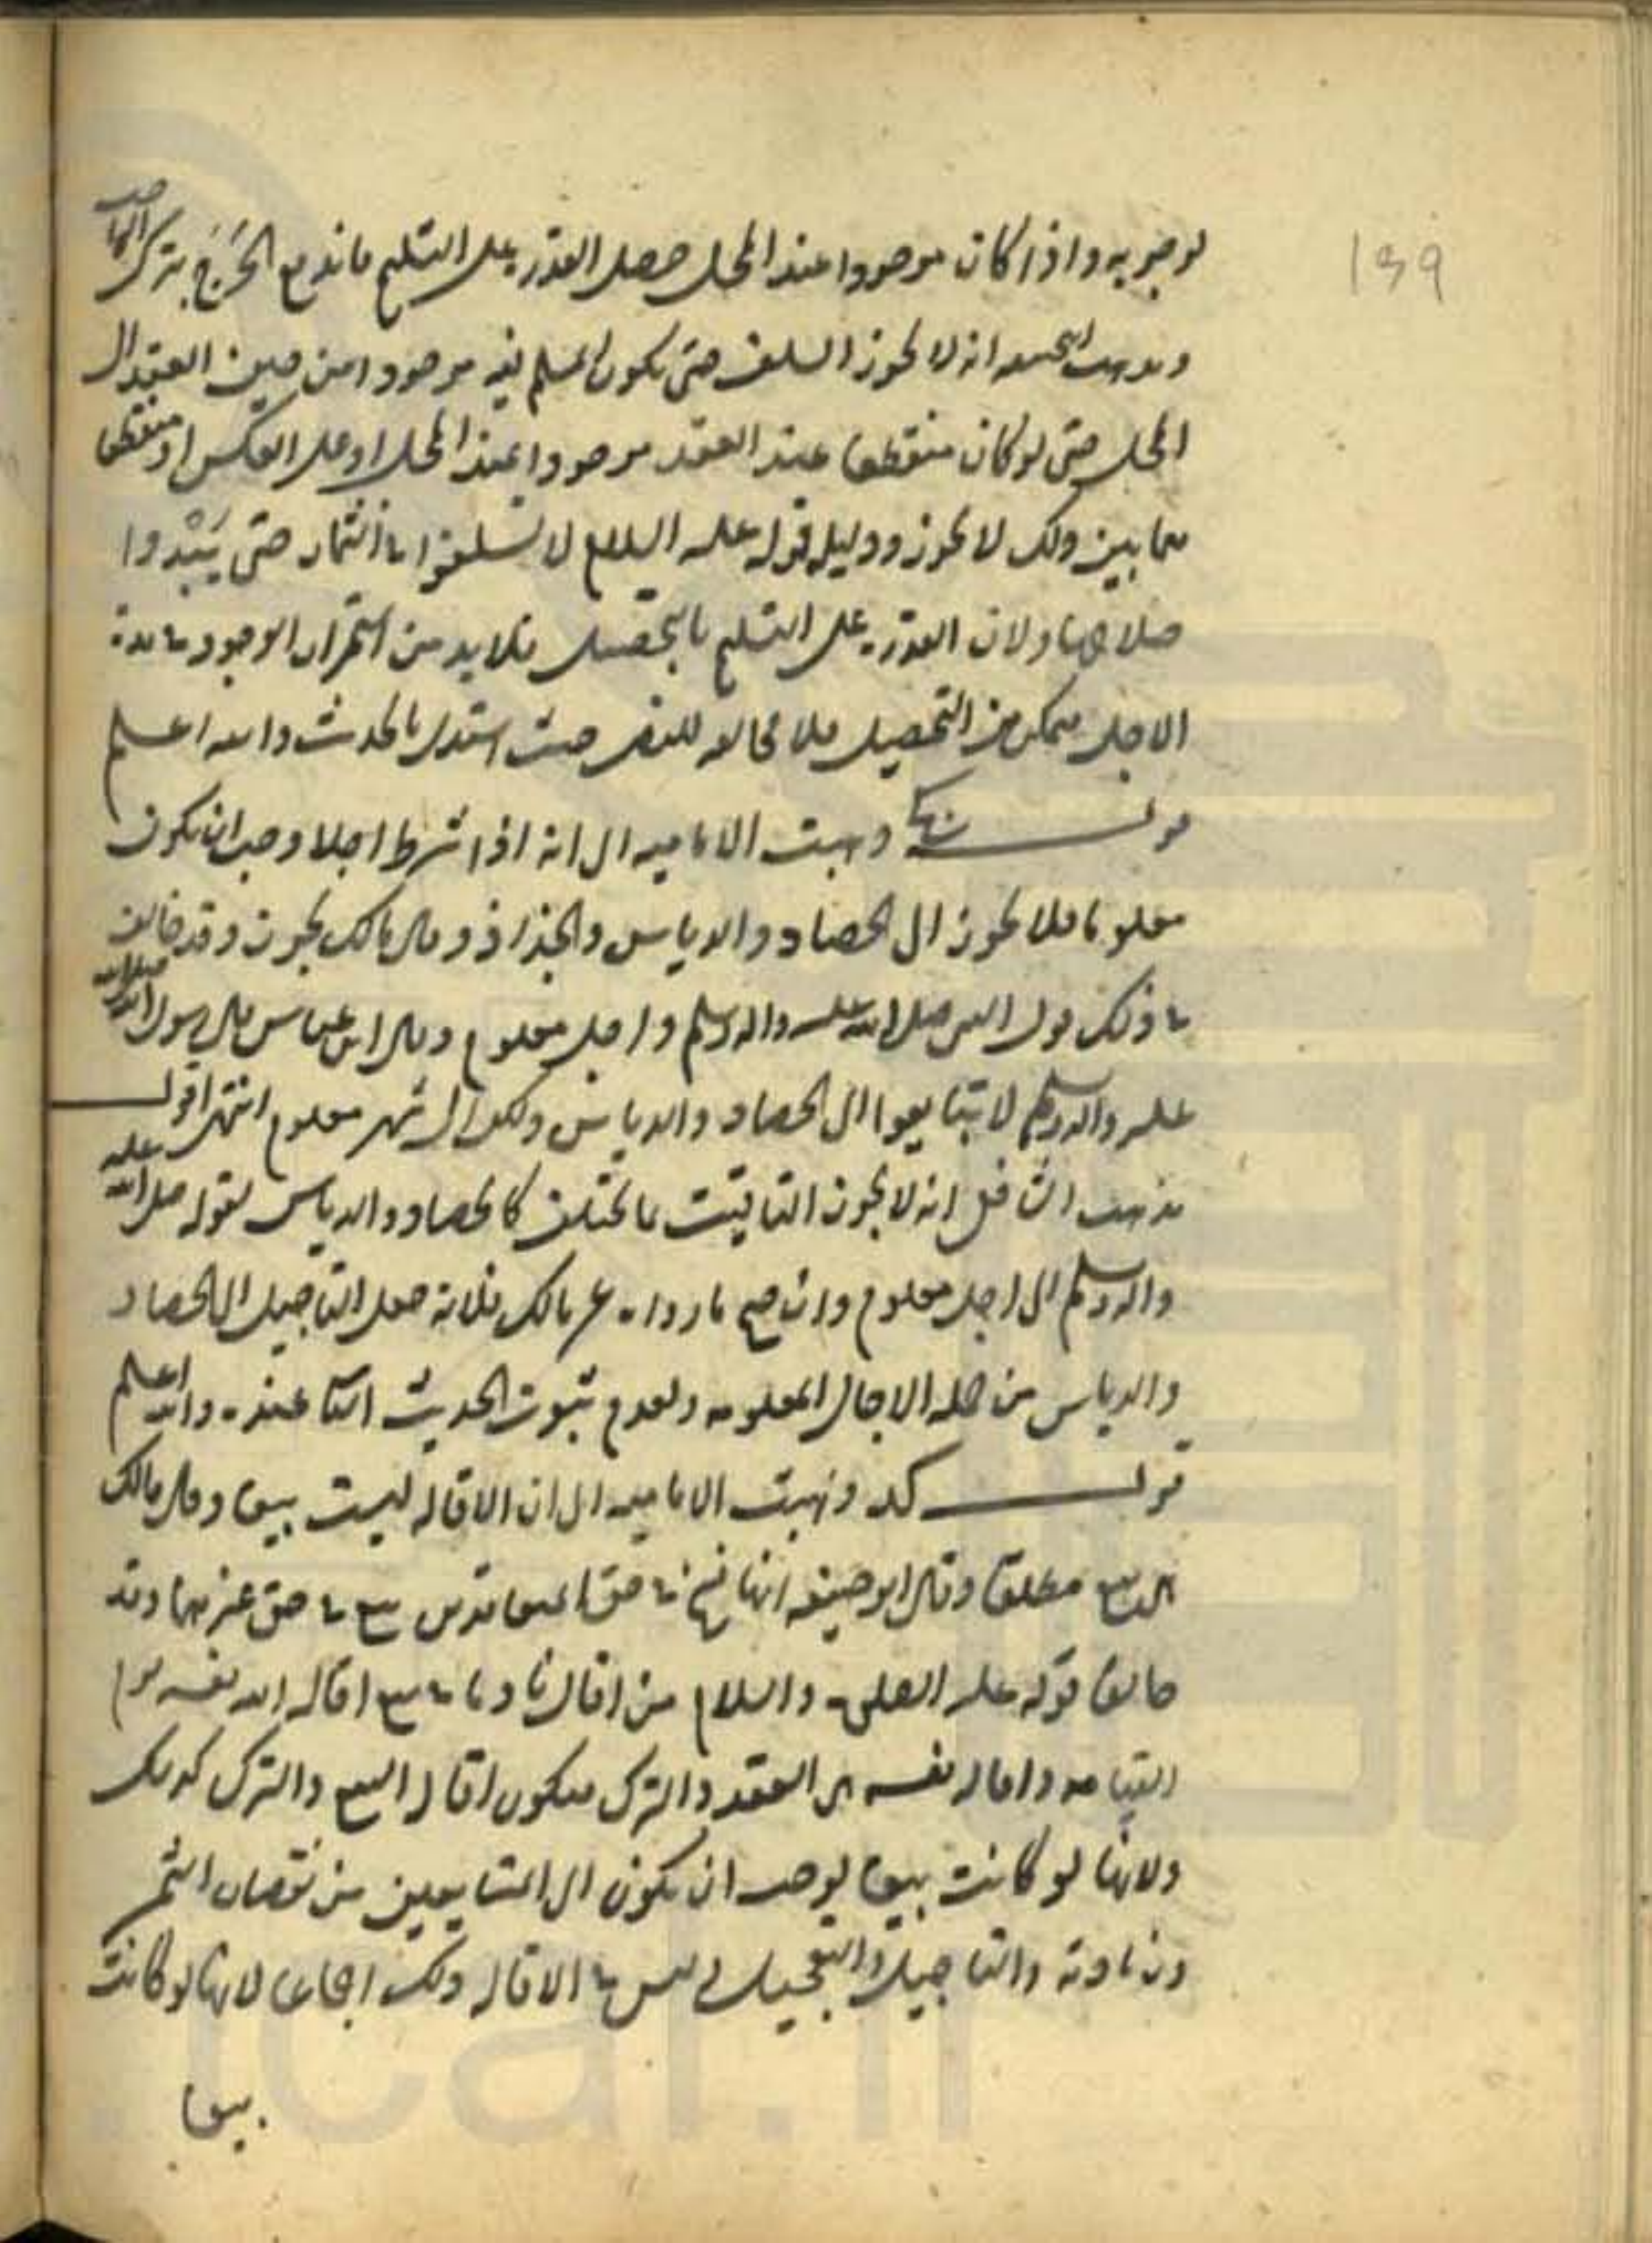 ١٣٩
لوجوبه واذا كان موجودا عند المحل حصل القدرة على التسليم فاندفع الحرج بترك
ومذهب انه لا يجوز السلف حتى يكون المسلم فيه موجودا من حين العقد الى
المحل حتى لو كان منقطعا عند العقد موجودا عند المحل او على العكس او منقطعا
فيما بين ذلك لا يجوز ودليله قوله عليه السلام لا تسلفوا في الثمار حتى يبدوا
صلاحها ولان القدرة على التسليم بالتحصيل فلا بد من استمرار الوجود في مدة
الاجل ليتمكن من التحصيل فلا مخالفة للنص حيث استدل بالحديث والله اعلم
قوله ذهبت الامامية الى انه اذا شرط اجلا وجب ان يكون
معلوما فلا يجوز الى الحصاد والدياس والجذاذ وقال مالك يجوز وقد خالف
في ذلك قول النبي صلى الله عليه واله وسلم واجل معلوم وقال ابن عباس قال رسول الله صلى الله
عليه واله وسلم لا تتبايعوا الى الحصاد والدياس ولكن الى شهر معلوم انتهى اقول
مذهب الشافعي انه لا يجوز التاقيت بما يختلف كالحصاد والدياس لقوله صلى الله عليه
واله وسلم الى اجل معلوم وان صح ما رواه عن مالك فلانه جعل التاجيل الى الحصاد
والدياس من جملة الاجال المعلومة ولعدم ثبوت الحديث عنده والله اعلم
قوله ذهبت الامامية الى ان الاقالة ليست بيعا وقال مالك
انها بيع مطلقا وقال ابو حنيفة انها فسخ في حق المتعاقدين بيع في حق غيرهما وقد
خالفا قوله عليه الصلوة والسلام من اقال نادما في بيع اقاله الله نفسه يوم
القيامة واقالة نفسه هي العفو والترك فيكون اقالة البيع والترك كذلك
ولانها لو كانت بيعا لوجب ان يكون الى المتبايعين من نقصان الثمن
وزيادته والتاجيل والتعجيل وليس في الاقالة ذلك اجماعا لانها لو كانت
بيعا